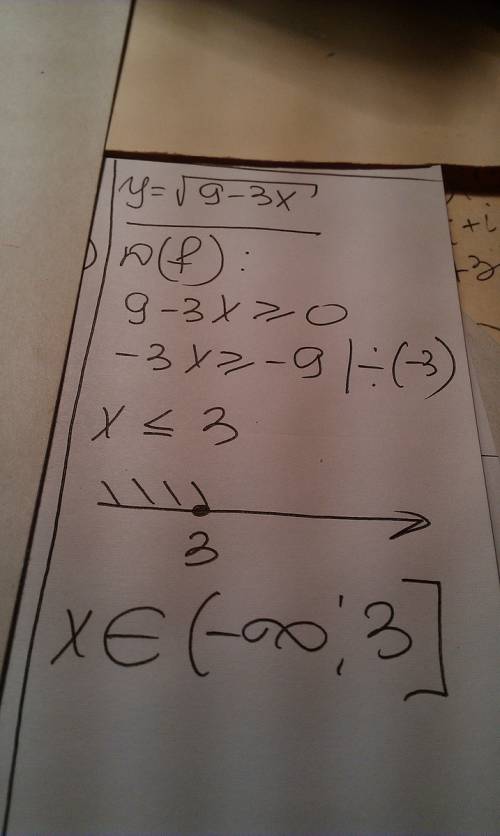 y = √9-3x
D(f):
9-3x ≥ 0
-3x ≥ -9 | ÷(-3)
x ≤ 3
3
x ∈ (-∞; 3]